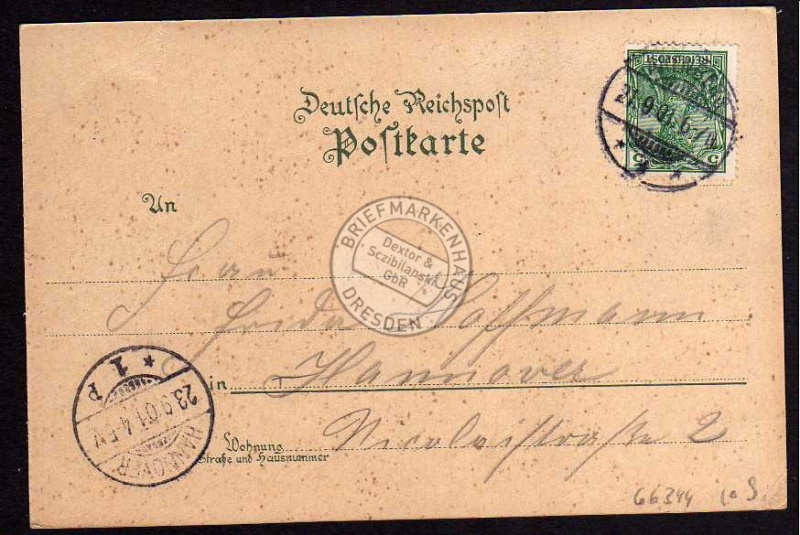 Deutsche Reichspost
Postkarte
REICHSPOST
5 5
21.9.01.
* 1 *
An
Frau
Frida Hoffmann
in Hannover
Wohnung
Straße und Hausnummer
Nicolaistraße 2
HANNOVER
23.9.01. 4-5N.
* 1 P
BRIEFMARKENHAUS
DRESDEN
Dextor &
Sczibilanski
GbR
66344